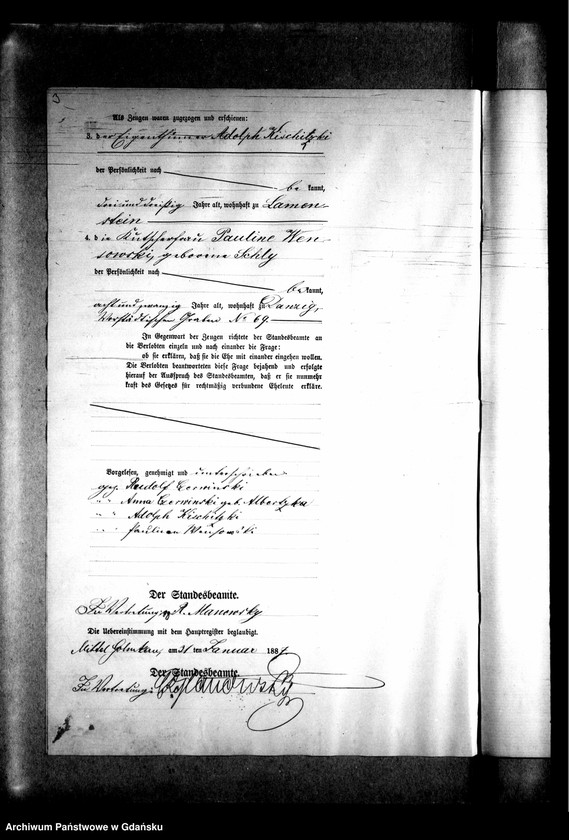 Als Zeugen waren zugezogen und erschienen:
3. der Eigenthümer Adolph Kischitzki
der Persönlichkeit nach
be kannt,
drei und dreißig Jahre alt, wohnhaft zu Lamen-
stein
4. die Kutscherfrau Pauline Wen-
sowski, geborene Schly
der Persönlichkeit nach
be kannt,
acht und zwanzig Jahre alt, wohnhaft zu Danzig,
Vorstädtischen Graben No 69.
In Gegenwart der Zeugen richtete der Standesbeamte an
die Verlobten einzeln und nach einander die Frage:
ob sie erklären, daß sie die Ehe mit einander eingehen wollen.
Die Verlobten beantworteten diese Frage bejahend und erfolgte
hierauf der Ausspruch des Standesbeamten, daß er sie nunmehr
kraft des Gesetzes für rechtmäßig verbundene Eheleute erkläre.
Vorgelesen, genehmigt und unterschrieben
gez. Rudolf Czerwinski
" " Anna Czerwinski geb.
" " Adolph Kischitzki
" " Wensowski
Der Standesbeamte.
In Vertretung: R.
Die Uebereinstimmung mit dem Hauptregister beglaubigt.
Mittel Golmkau, am 31 ten Januar 1887
Der Standesbeamte.
In Vertretung:
Archiwum Państwowe w Gdańsku